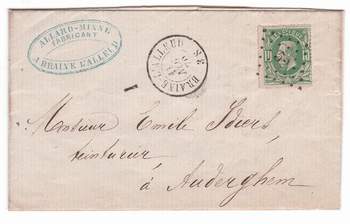 ALLARD-MINNE
FABRICANT
A BRAINE L'ALLEUD
BRAINE-L'ALLEUD
Monsieur Emile Idiers
teinturier
à Auderghem